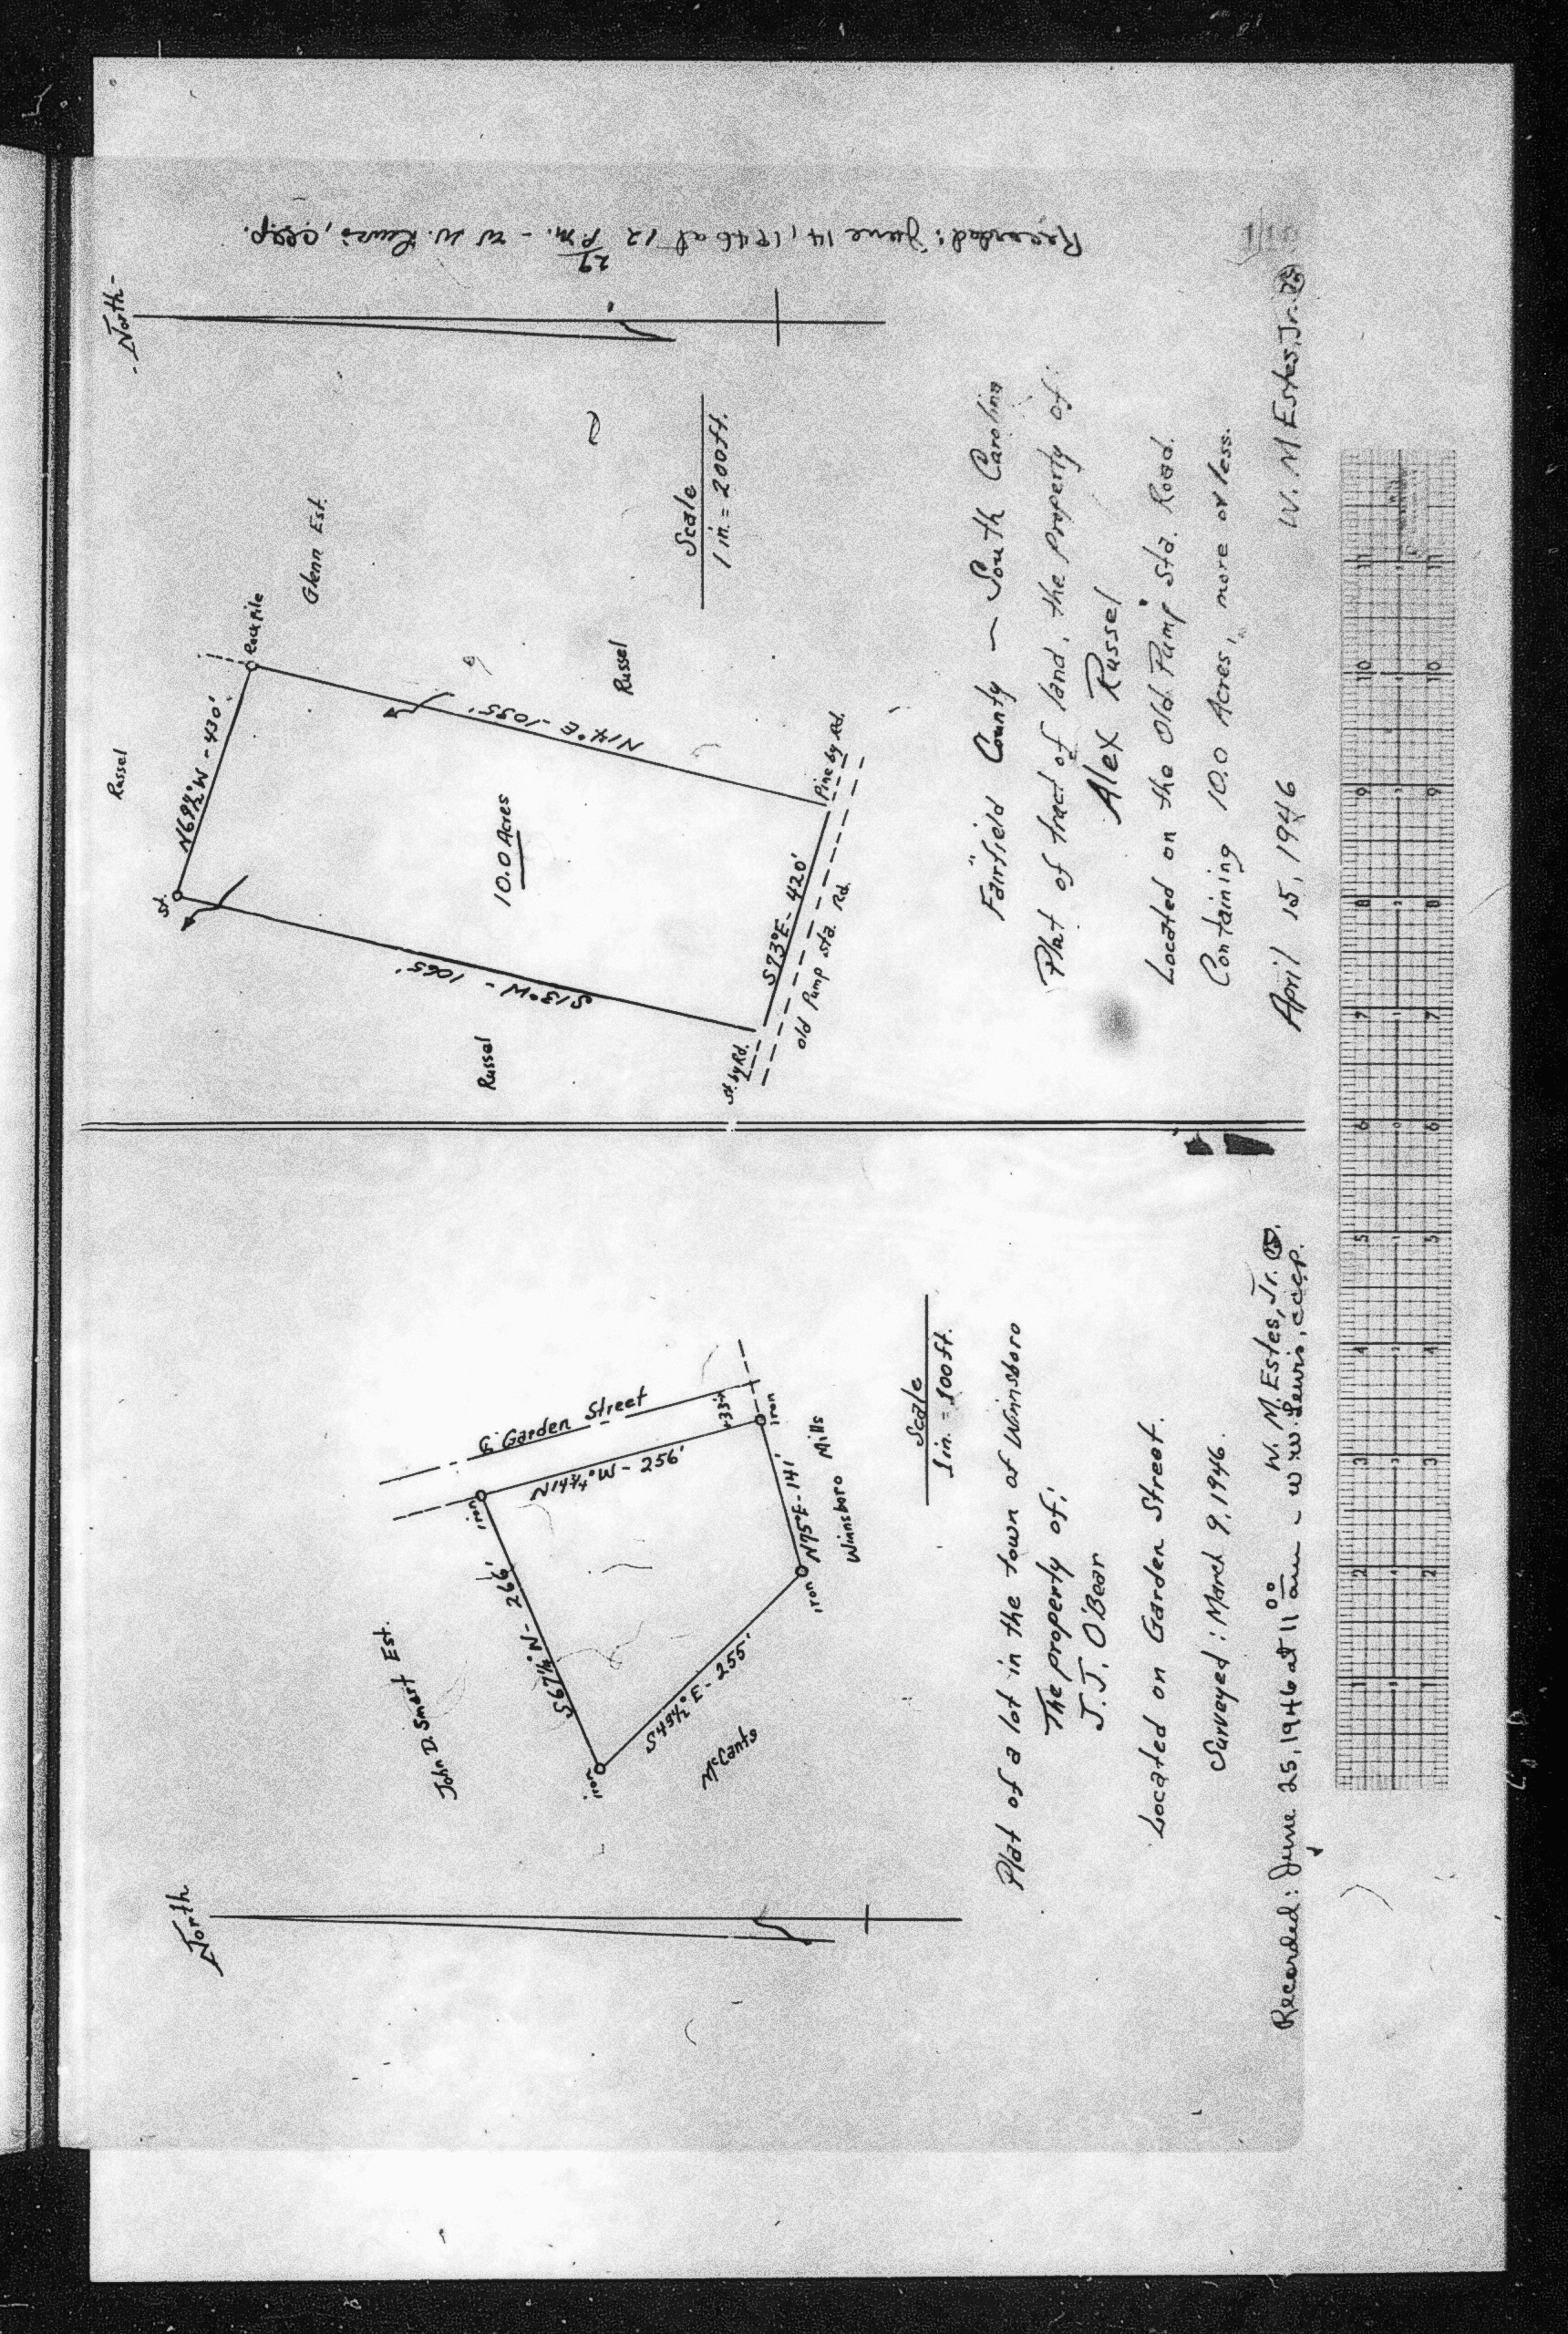 Recorded: June 14, 1946 at 12 29 P.M. - W. W. Lewis, cccp.
- North -
Russel
Rock Pile
Glenn Est.
N69½°W - 430'
St.
N14°E - 1055'
Russel
10.0 Acres
S13°W - 1065'
Russel
S73°E - 420'
Pine by Rd.
St. by Rd.
old Pump Sta. Rd.
Scale
1 in. = 200 ft.
Fairfield County - South Carolina
Plat of tract of land, the Property of:
Alex Russel
Located on the Old Pump Sta. Road.
Containing 10.0 Acres, more or less.
April 15, 1946
W. M Estes, Jr.
North
John D. Smart Est.
Garden Street
iron
N14¾°W - 256'
33'
iron
S67¼°N - 266'
iron
S49½°E - 255'
McCants
iron
N75°E - 141'
Winnsboro Mills
Scale
1 in. = 100 ft.
Plat of a lot in the town of Winnsboro
The property of:
J. J. O'Bear
Located on Garden Street.
Surveyed: March 9, 1946.
W. M. Estes, Jr.
Recorded: June 25, 1946 at 11 00 am - W. W. Lewis, cccp.
1 2 3 4 5 6 7 8 9 10 11
1 2 3 4 5 6 7 8 9 10 11